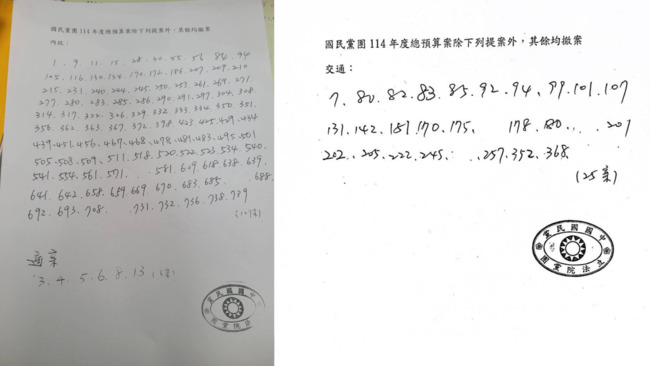 國民黨團 114 年度總預算案除下列提案外，其餘均撤案
內政：
1. 9. 11. 15. 28. 30. 55. 56. 86. 94
105. 116. 130. 134. 170. 172. 186. 207. 209. 210
215. 231. 240. 244. 245. 250. 253. 261. 269. 271
277. 280. 283. 285. 286. 290. 291. 297. 304. 308
314. 317. 322. 326. 329. 332. 333. 334. 350. 351.
356. 362. 363. 367. 372. 398. 423. 425. 429. 434
439. 451. 456. 467. 468. 478. 481. 483. 495. 501
505. 508. 509. 511. 518. 520. 522. 523. 534. 540.
541. 554. 561. 571. 581. 609. 618. 638. 639.
641. 642. 658. 659. 669. 670. 683. 685. 688.
692. 693. 708. 731. 732. 736. 738. 739
通案
3. 4. 5. 6. 8. 13
國民黨團 114 年度總預算案除下列提案外，其餘均撤案
交通：
7. 80. 82. 83. 85. 92. 94. 99. 101. 107
131. 142. 151. 170. 175. 178. 180. 201
202. 205. 222. 245. 257. 352. 368.
(25案)
中國國民黨
立法院黨團